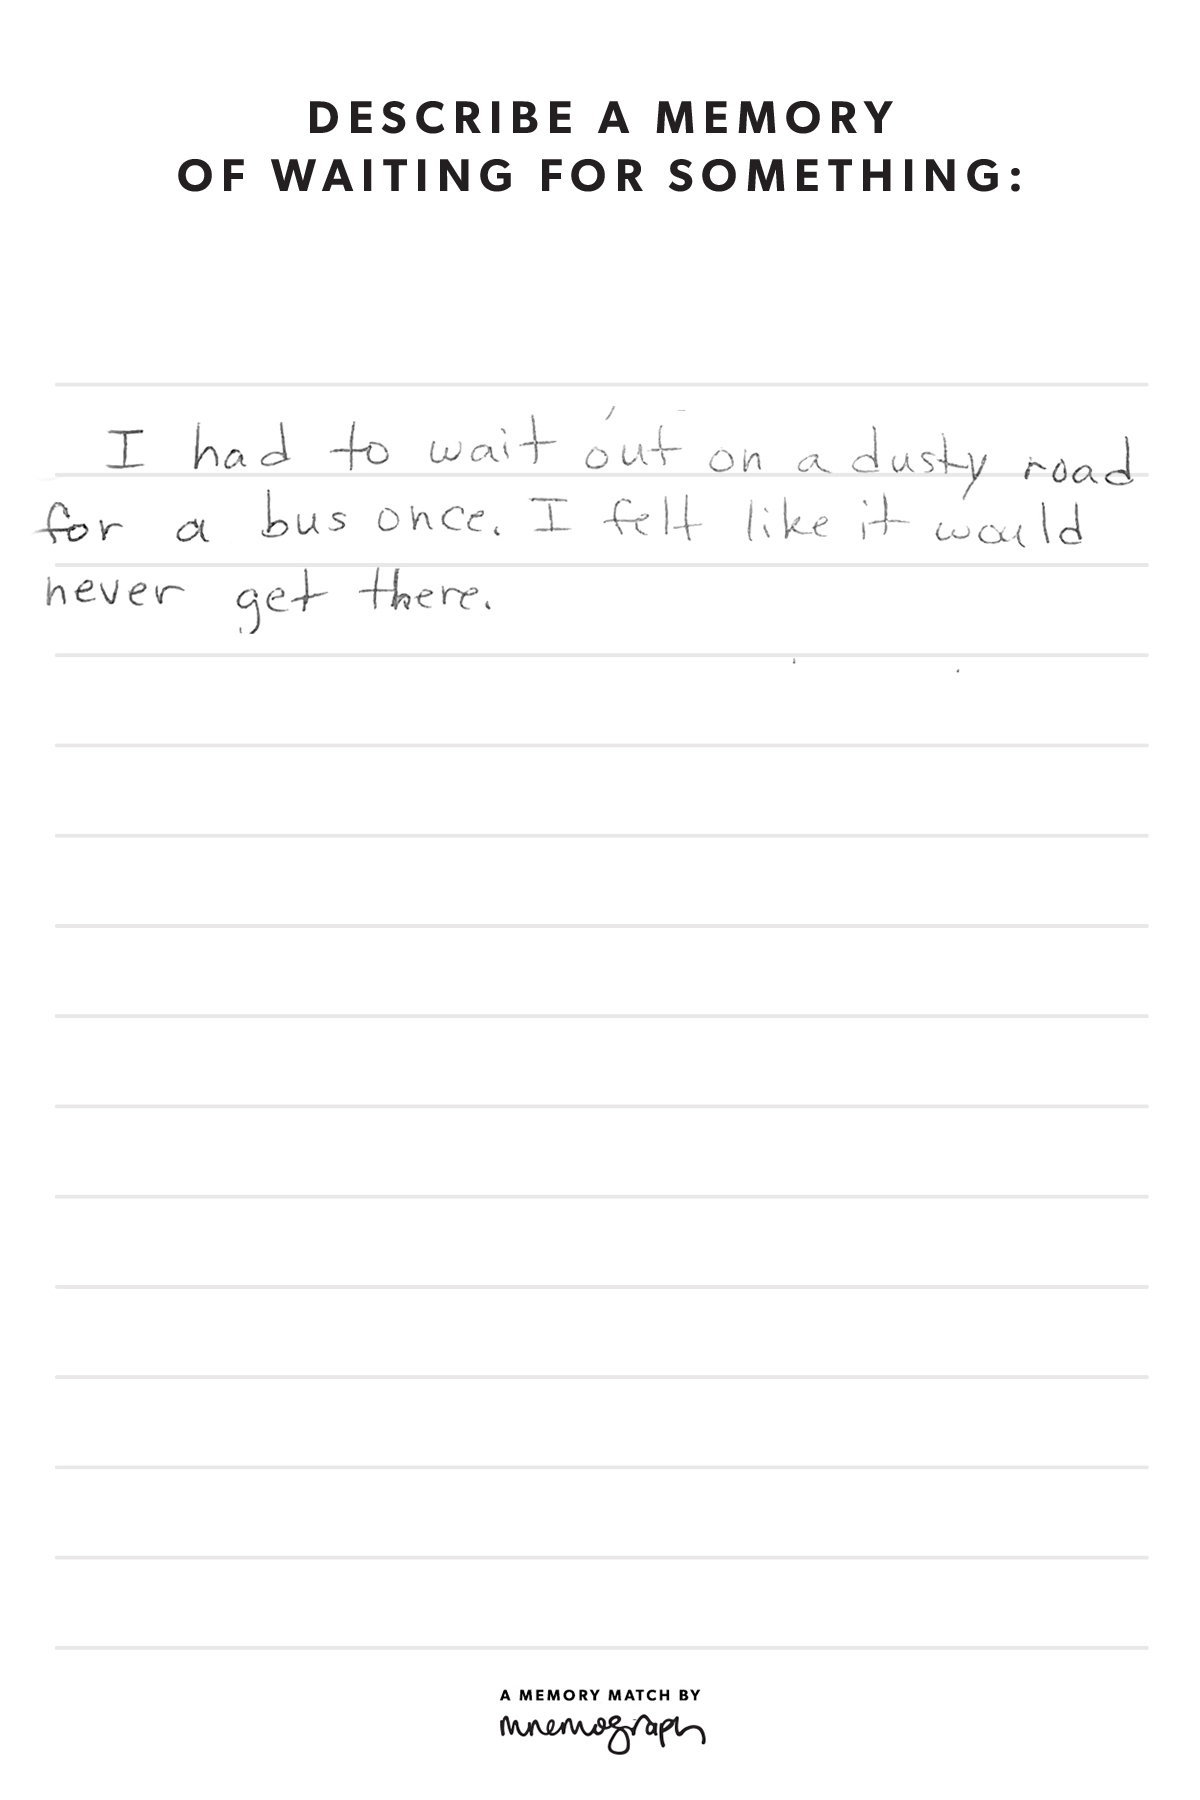 DESCRIBE A MEMORY
OF WAITING FOR SOMETHING:
I had to wait out on a dusty road
for a bus once. I felt like it would
never get there.
A MEMORY MATCH BY
mnemograph